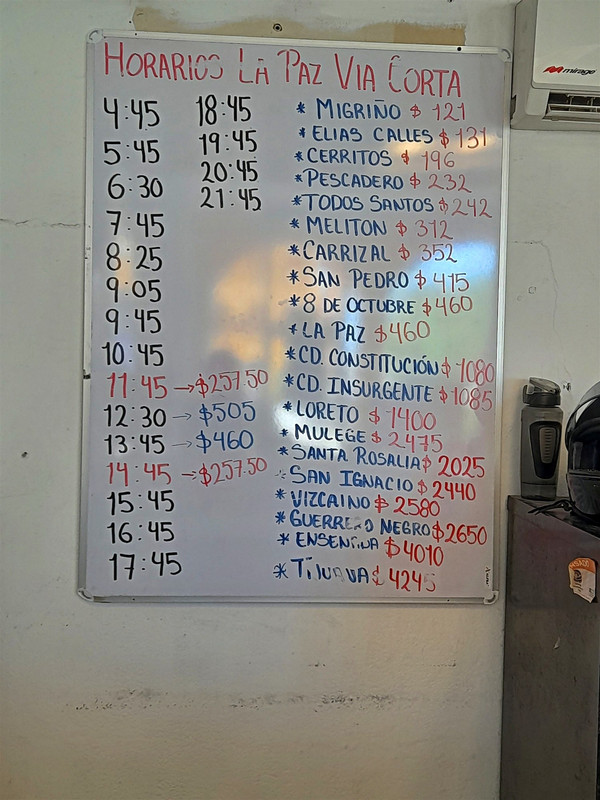 HORARIOS LA PAZ VIA CORTA
4:45
5:45
6:30
7:45
8:25
9:05
9:45
10:45
11:45 → $257.50
12:30 → $505
13:45 → $460
14:45 → $257.50
15:45
16:45
17:45
18:45
19:45
20:45
21:45
* MIGRIÑO $ 121
* ELIAS CALLES $ 131
* CERRITOS $ 196
* PESCADERO $ 232
* TODOS SANTOS $ 242
* MELITON $ 312
* CARRIZAL $ 352
* SAN PEDRO $ 415
* 8 DE OCTUBRE $ 460
* LA PAZ $ 460
* CD. CONSTITUCIÓN $ 1080
* CD. INSURGENTE $ 1085
* LORETO $ 1400
* MULEGE $ 2475
* SANTA ROSALIA $ 2025
* SAN IGNACIO $ 2440
* VIZCAINO $ 2580
* GUERRERO NEGRO $ 2650
* ENSENADA $ 4010
* TIJUANA $ 4245
mirage